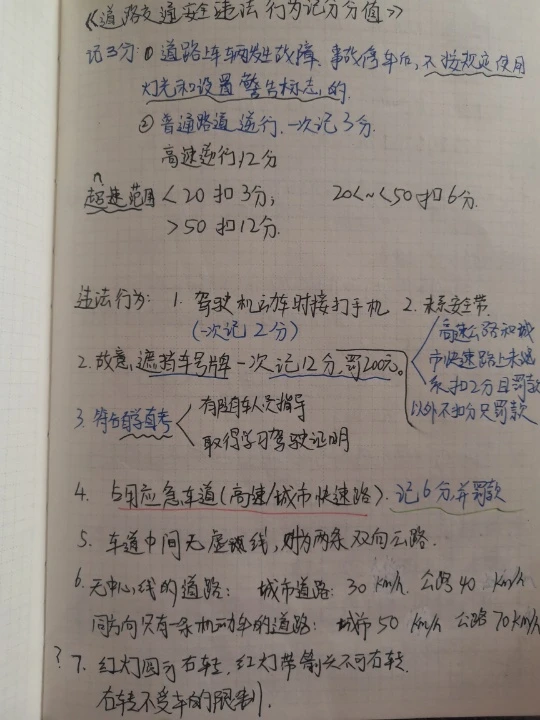 《道路交通安全违法行为记分分值》
记3分:①道路上车辆发生故障、事故停车后,不按规定使用
灯光和设置警告标志的.
②普通路道逆行.一次记3分.
高速逆行,12分
超速范围 <20扣3分; 20<~<50扣6分.
>50扣12分.
违法行为: 1. 驾驶机动车时接打手机 2. 未系安全带
(一次记2分)
高速公路和城
市快速路上未系
扣2分且罚款
以外不扣分只罚款
2. 故意遮挡车号牌一次记12分,罚200元。
3. 符合自学直考
有随车人员指导
取得学习驾驶证明
4. 占用应急车道(高速/城市快速路).记6分并罚款
5. 车道中间无虚实线,则为两条双向公路.
6. 无中心线的道路: 城市道路:30 km/h. 公路40 km/h
同方向只有一条机动车的道路: 城市50 km/h 公路70km/h
? 7. 红灯圆可右转,红灯带箭头不可右转.
右转不受车的限制.